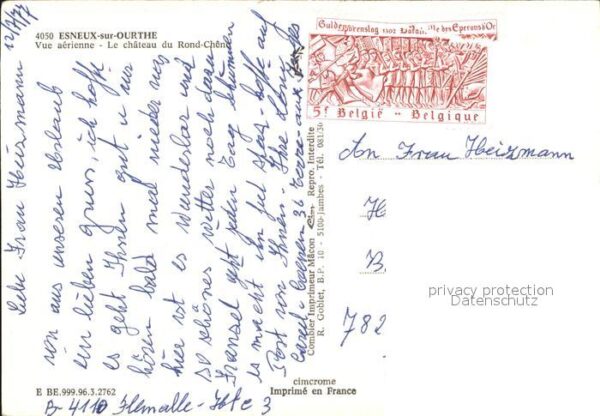 4050 ESNEUX-sur-OURTHE
Vue aérienne - Le château du Rond-Chêne
12/9/77
Liebe Frau Heizmann
von aus unseren Urlaub
ein lieben gruss, ich hoffe
es geht Ihnen gut u wir
hören bald mal wieder was
hier ist es wunderbar und
so schönes Witter noch dazu
Fransel geht jeden Tag schwimmen
es macht ihm fiel Spas, hoffe auf
Post von Ihnen. Ihre
36
B-4110 Flemalle-Hte 3
E BE.999.96.3.2762
Combier Imprimeur Mâcon Cim Repro. Interdite
R. Goblet, B.P. 10 - 5100-Jambes - Tél. 081/30
cimcrome
Imprimé en France
Guldensporenslag 1302 Bataille des Eperons d'Or
5F België - Belgique
An Frau Heizmann
H
B.
782
privacy protection
Datenschutz